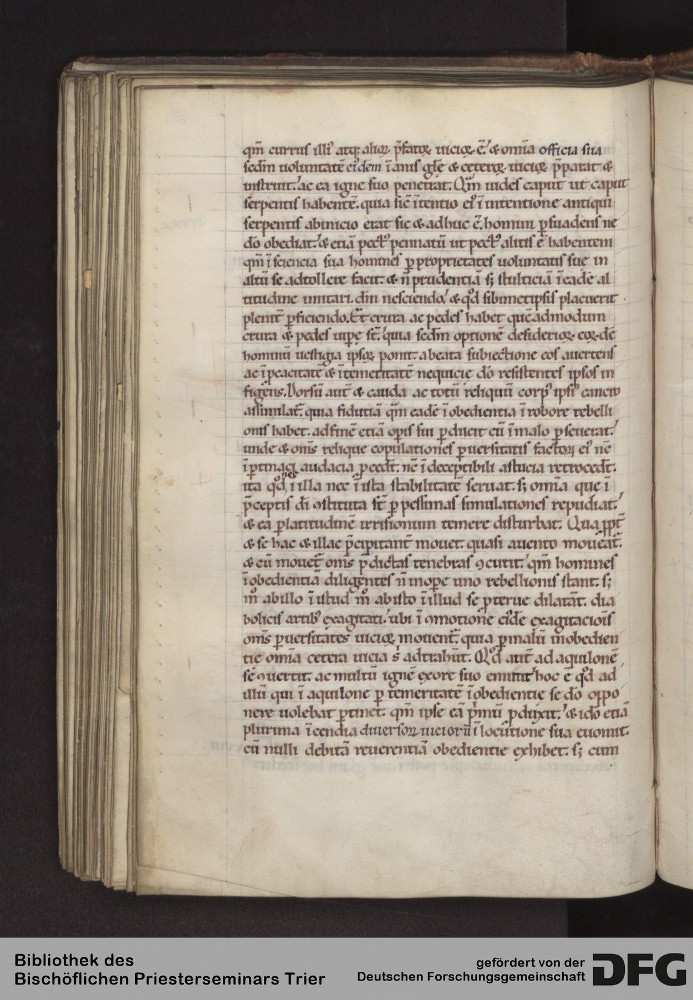 qm̄ currus illi᷒ atq; alioꝝ p̄fatoꝝ uicioꝝ ē. ⁊ om̄ia officia sua
scdm uoluntatē ei᷒dem īanis glę ⁊ ceteroꝝ uicioꝝ p̄parat ⁊
instruit. ac ea igne suo penetrat. Qm̄ uides caput ut caput
serpentis habentē. quia sic ītentio ei᷒ ī intentione antiqui
serpentis abinicio erat sic ⁊ adhuc ē. homini p̄suadens ne
do obediat. ⁊ etiā pect᷒ pennatū ut pect᷒ alitis ē habentem
qm̄ īsciencia sua homines p proprietates uoluntatis sue in
altū se adtollere facit. ⁊ n̄ prudentiā s; stulticiā ī eadē al
titudine imitari. dm̄ nesciendo. ⁊ qd sibimetipsis placuerit
plenit᷒ pficiendo. Et crura ac pedes habet quēadmodum
crura ⁊ pedes uipe st̄. quia scdm optionē desiderioꝝ eoꝝdē
hominū uestigia ipsoꝝ ponit. abeata subiectione eos auertens
ac īpcacitatē ⁊ ītemeritatē nequicie do resistentes ipsos in
figens. Dorsū aut̄ ⁊ cauda ac totū reliquū corp᷒ ipsi᷒ cancro
assimilat᷒. quia fidutiā qm̄ eadē īobedientia ī robore rebelli
onis habet. adfinē etiā opis sui pducit cū īmalo pseuerat.
unde ⁊ om̄s relique copulationes puersitatis factoꝝ ei᷒ nē
īptinaci audacia pcedt̄. nē īdeceptibili astucia retrocedt̄.
ita qd̄ ī illa nec ī ista stabilitatē seruat. s; om̄ia que ī
p̄ceptis di ꝯstituta st̄ p pessimas simulationes repudiat.
⁊ ea platitudinē irrisionum temere disturbat. Qua ppt̄
⁊ se hac ⁊ illac p̄cipitant̄ mouet. quasi auento moueat᷒.
⁊ cū mouet̄ om̄s pdictas tenebras ꝯcutit. qm̄ homines
īobedientiā diligentes n̄ inope uno rebellionis stant. s;
m̄ abillo ī istud m̄ abisto ī illud se pterue dilatāt. dia
bolicis artib᷒ exagitati. ubi ī ꝯmotione ei᷒dē exagitacioīs
om̄s puersitates uicioꝝ mouent̄. quia p malū inobedien
tie om̄ia cetera uicia s̄ adtrahūt. Qd̄ aut̄ ad aquilonē
sē ꝯuertit. ac multū ignē exore suo emittit. hoc ē qd̄ ad
illū qui ī aquilone p temeritatē īobedientie se do oppo
nere uolebat ptinet. qm̄ ipse eā pmū pduxit. ⁊ ido etiā
plurima īcendia diuersoꝝ uicioꝝ ī locutione sua euomit.
cū nulli debitā reuerentiā obedientie exhibet. s; cum
Bibliothek des
Bischöflichen Priesterseminars Trier
gefördert von der
Deutschen Forschungsgemeinschaft
DFG